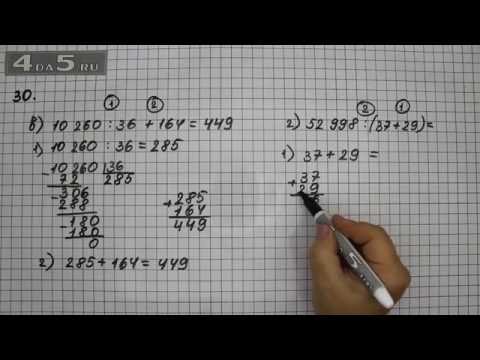 4 DA 5.RU
30.
① ②
в) 10 260 : 36 + 164 = 449
1) 10 260 : 36 = 285
10 260 36
72 285
- 306
288
- 180
180
0
+ 285
164
449
2) 285 + 164 = 449
② ①
г) 52 998 : (37 + 29) =
1) 37 + 29 =
+ 37
29